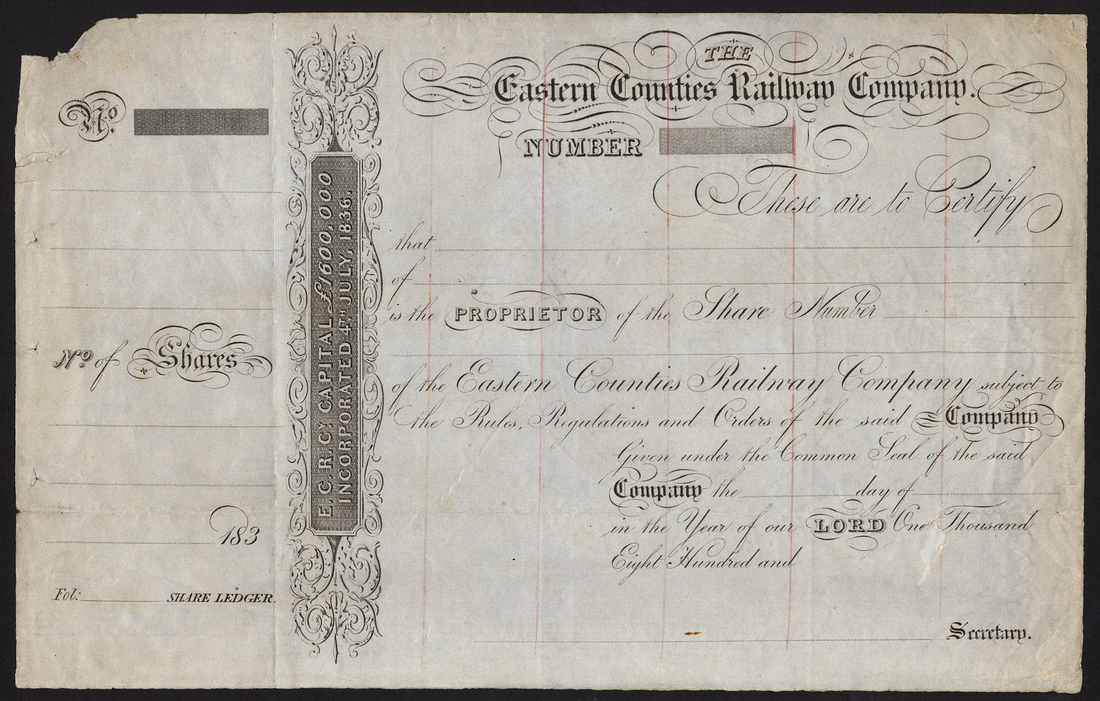 No.
No. of Shares
183
Fol: SHARE LEDGER
E. C. R. Cy. CAPITAL £1600,000
INCORPORATED 4TH JULY, 1836.
THE
Eastern Counties Railway Company.
NUMBER
These are to Certify
that
of
is the PROPRIETOR of the Share Number
of the Eastern Counties Railway Company subject to
the Rules, Regulations and Orders of the said Company
Given under the Common Seal of the said
Company the day of
in the Year of our LORD One Thousand
Eight Hundred and
Secretary.